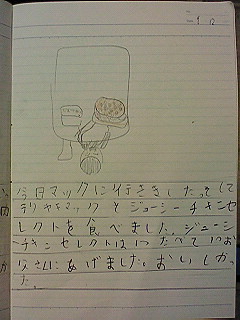 今日マックに行きました。そして
テリヤキマックとジューシーチキンセ
レクトを食べました。ジューシ
ーチキンセレクトは1つたべて1つお
父さんにあげました。おいしかっ
た。